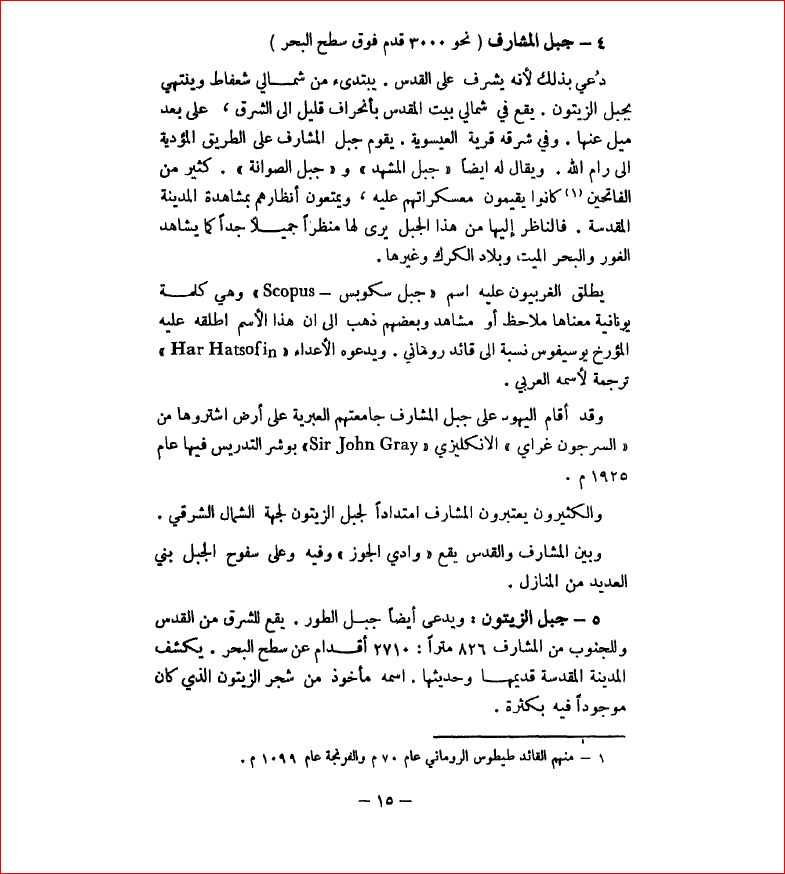 ٤ – جبل المشارف ( نحو ٣٠٠٠ قدم فوق سطح البحر )
دُعي بذلك لأنه يشرف على القدس . يبتدىء من شمالي شعفاط وينتهي
بجبل الزيتون . يقع في شمالي بيت المقدس بأنحراف قليل الى الشرق ، على بعد
ميل عنها . وفي شرقه قرية العيسوية . يقوم جبل المشارف على الطريق المؤدية
الى رام الله . ويقال له ايضاً « جبل المشهد » و « جبل الصوانة » . كثير من
الفاتحين (١) كانوا يقيمون معسكراتهم عليه ، ويمتعون أنظارهم بمشاهدة المدينة
المقدسة . فالناظر إليها من هذا الجبل يرى لها منظراً جميلاً جداً كما يشاهد
الغور والبحر الميت وبلاد الكرك وغيرها .
يطلق الغربيون عليه اسم « جبل سكوبس – Scopus » وهي كلمة
يونانية معناها ملاحظ أو مشاهد وبعضهم ذهب الى ان هذا الأسم اطلقه عليه
المؤرخ يوسيفوس نسبة الى قائد روماني . ويدعوه الأعداء « Har Hatsofin »
ترجمة لأسمه العربي .
وقد أقام اليهود على جبل المشارف جامعتهم العبرية على أرض اشتروها من
« السرجون غراي » الانكليزي « Sir John Gray » بوشر التدريس فيها عام
١٩٢٥ م .
والكثيرون يعتبرون المشارف امتداداً لجبل الزيتون لجهة الشمال الشرقي .
وبين المشارف والقدس يقع « وادي الجوز » وفيه وعلى سفوح الجبل بني
العديد من المنازل .
٥ – جبل الزيتون : ويدعى أيضاً جبل الطور . يقع للشرق من القدس
وللجنوب من المشارف ٨٢٦ متراً : ٢٧١٠ أقدام عن سطح البحر . يكشف
المدينة المقدسة قديمها وحديثها . اسمه مأخوذ من شجر الزيتون الذي كان
موجوداً فيه بكثرة .
١ – منهم القائد طيطوس الروماني عام ٧٠ م والفرنجة عام ١٠٩٩ م .
– ١٥ –